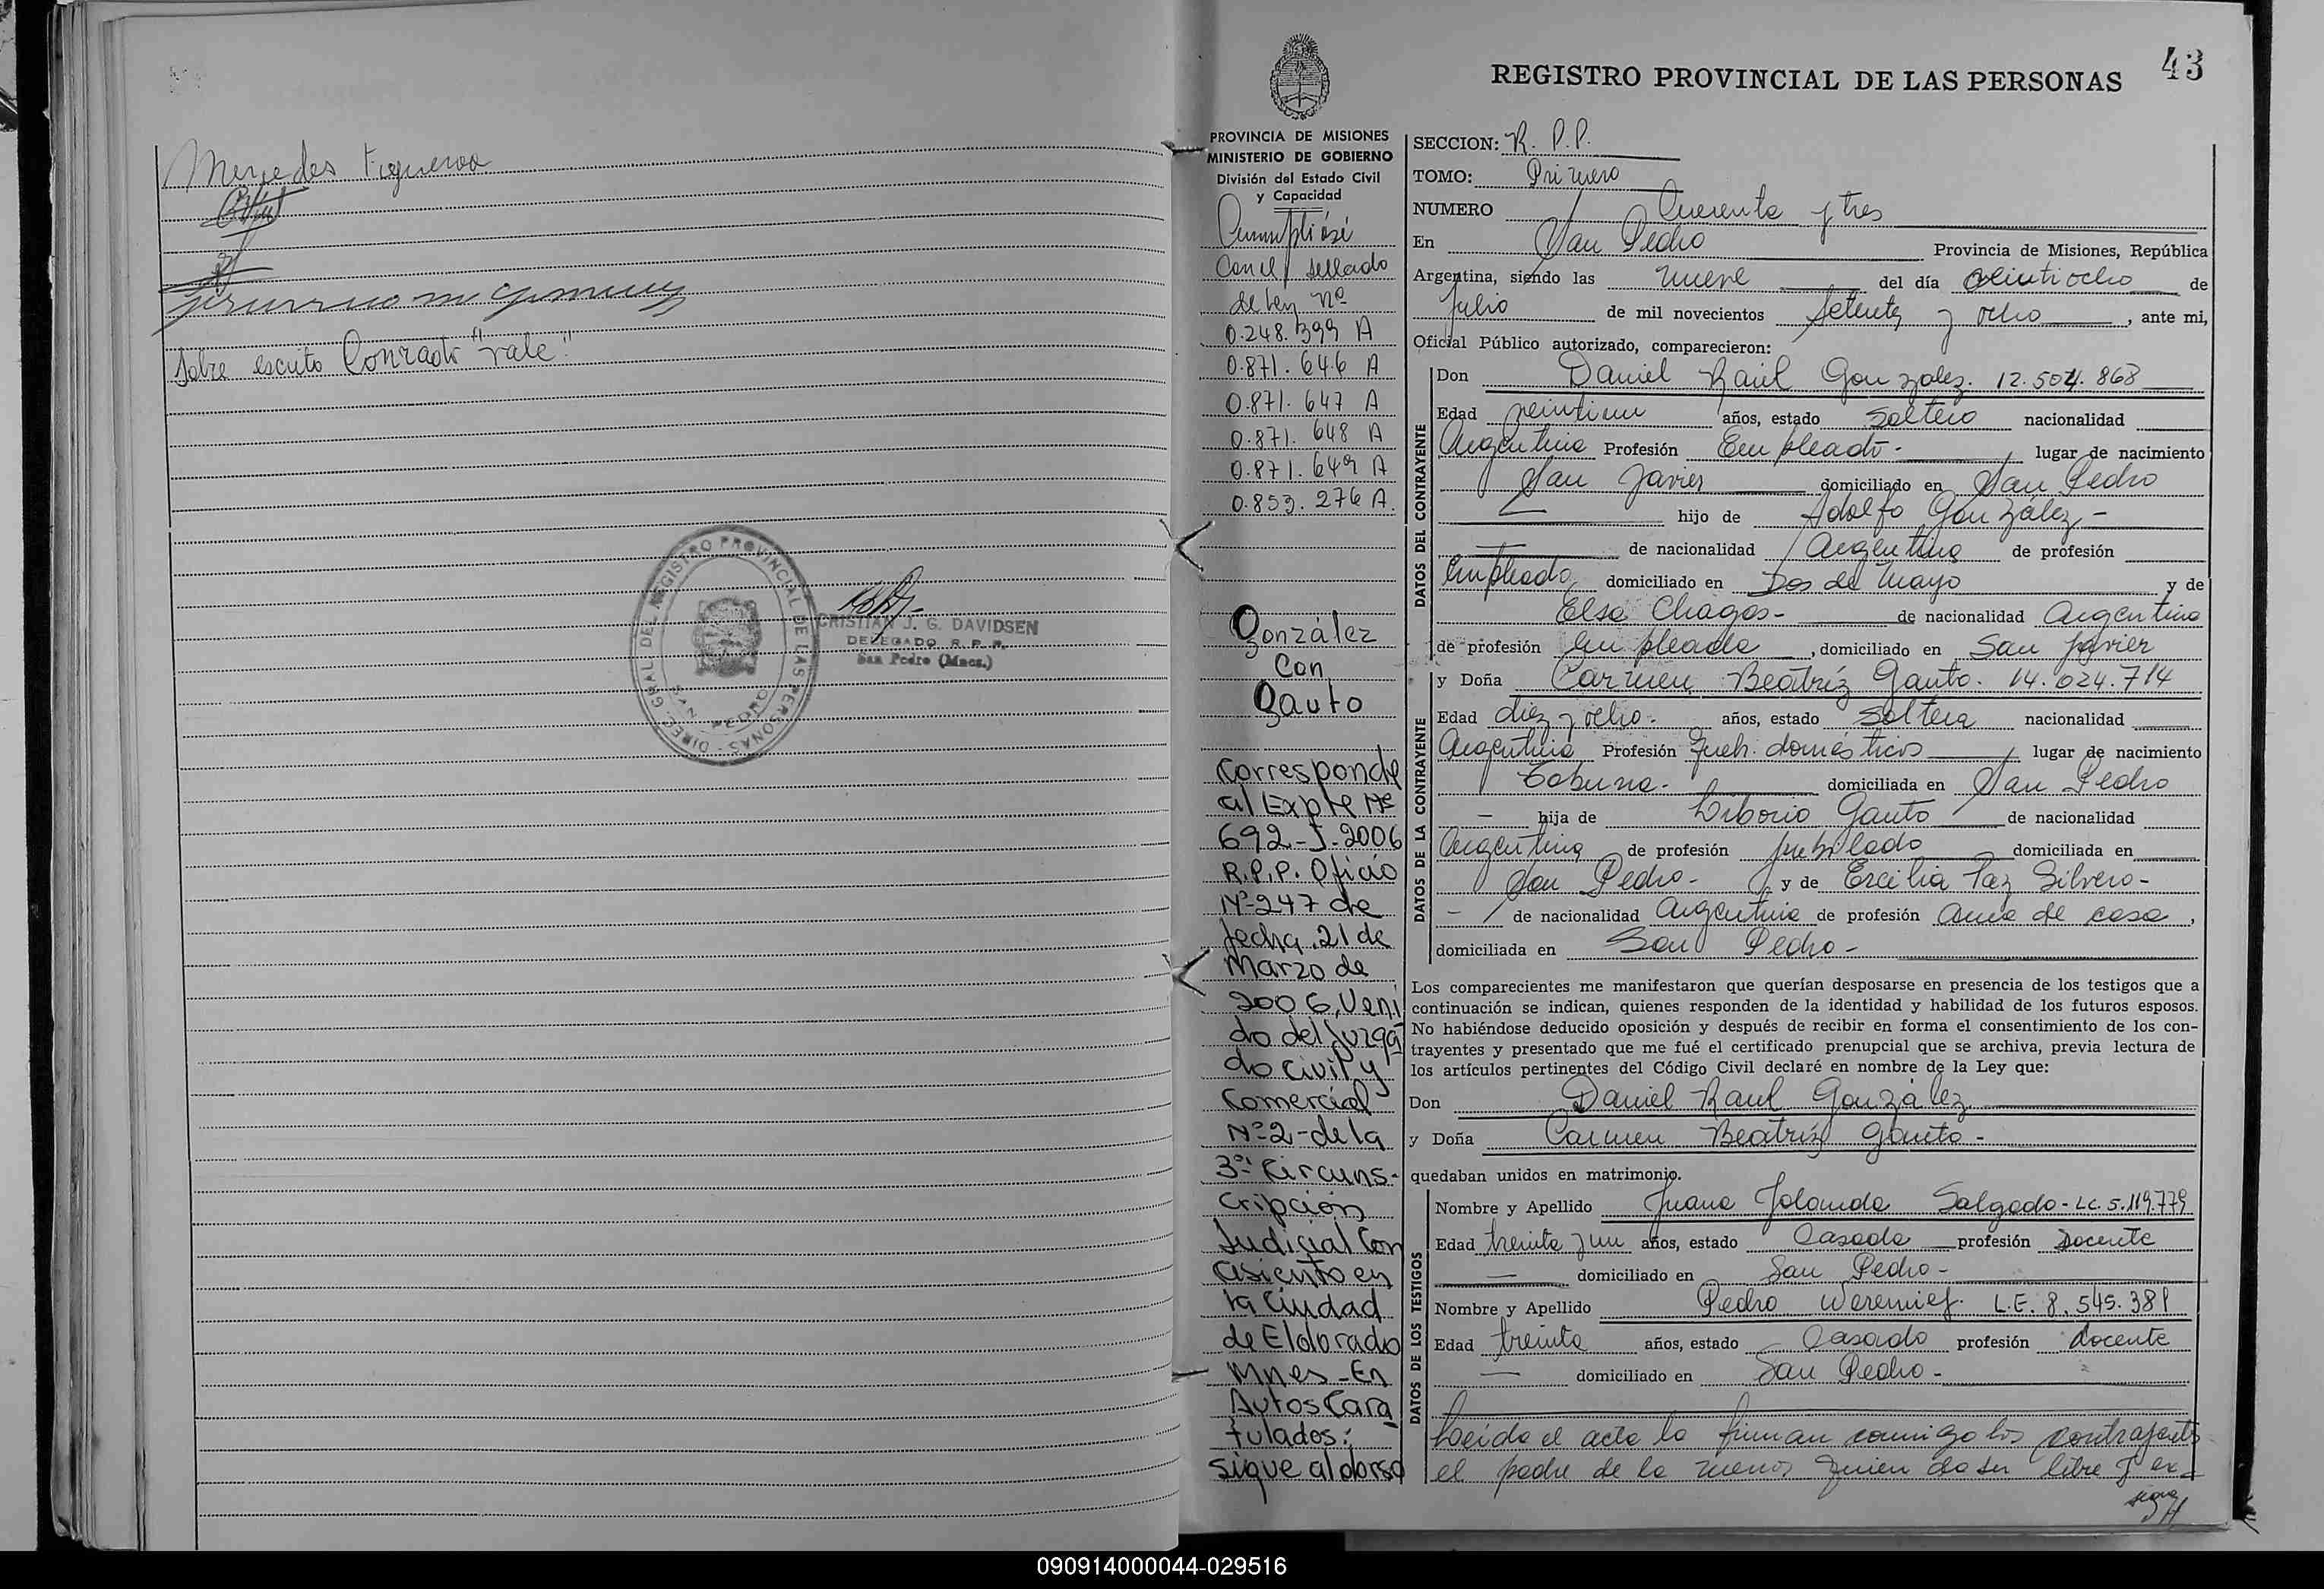 Mercedes Figueroa
Sobre escrito Conrado "vale".
REGISTRO PROVINCIAL DE LAS PERSONAS - DIREC. GRAL DEL
SAN PEDRO
CRISTIAN J. G. DAVIDSEN
DELEGADO R. P. P.
San Pedro (Mnes.)
43
REGISTRO PROVINCIAL DE LAS PERSONAS
PROVINCIA DE MISIONES
MINISTERIO DE GOBIERNO
División del Estado Civil
y Capacidad
Cumpliósé
con el sellado
de ley nº
0.248.399 A
0.871.646 A
0.871.647 A
0.871.648 A
0.871.649 A
0.853.276 A.
González
Con
Gauto
Corresponde
al Expte Nº
692-J-2006
R.P.P. Oficio
Nº 247 de
fecha 21 de
Marzo de
2006, Veni
do del Juzga
do Civil y
Comercial
Nº 2 - de la
3º Circuns-
cripción
Judicial Con
asiento en
la Ciudad
de Eldorado
Mnes - En
Autos Cara
tulados:
sigue al dorso
SECCION: R. P.P.
TOMO: Primero
NUMERO Cuarenta y tres
En San Pedro Provincia de Misiones, República
Argentina, siendo las nueve del día veintiocho de
Julio de mil novecientos Setenta y ocho, ante mi,
Oficial Público autorizado, comparecieron:
DATOS DEL CONTRAYENTE
Don Daniel Raúl González. 12.504.868
Edad veintiun años, estado Soltero nacionalidad
Argentina Profesión Empleado - lugar de nacimiento
San Javier domiciliado en San Pedro
hijo de Adolfo González -
de nacionalidad Argentina de profesión
Empleado domiciliado en Dos de Mayo y de
Elsa Chagas - de nacionalidad Argentina
de profesión Empleada, domiciliado en San Javier
DATOS DE LA CONTRAYENTE
y Doña Carmen Beatríz Gauto. 14.024.714
Edad diez y ocho. años, estado Soltera nacionalidad
Argentina Profesión Queh. domésticos lugar de nacimiento
Tobuna. domiciliada en San Pedro
- hija de Liborio Gauto de nacionalidad
Argentina de profesión Jubilado domiciliada en
San Pedro - y de Ercilia Paz Silvero -
- de nacionalidad Argentina de profesión ama de casa,
domiciliada en San Pedro -
Los comparecientes me manifestaron que querían desposarse en presencia de los testigos que a
continuación se indican, quienes responden de la identidad y habilidad de los futuros esposos.
No habiéndose deducido oposición y después de recibir en forma el consentimiento de los con-
trayentes y presentado que me fué el certificado prenupcial que se archiva, previa lectura de
los artículos pertinentes del Código Civil declaré en nombre de la Ley que:
Don Daniel Raul González
y Doña Carmen Beatríz Gauto -
quedaban unidos en matrimonio.
DATOS DE LOS TESTIGOS
Nombre y Apellido Juana Jolanda Salgado - LC. 5.119.779
Edad treinta y un años, estado Casada profesión Docente
- domiciliado en San Pedro -
Nombre y Apellido Pedro L.E. 8.545.381
Edad treinta años, estado Casado profesión docente
- domiciliado en San Pedro -
Leída el acta la firman conmigo los contrayentes
el padre de la menor quien da su libre y ex-
090914000044-029516